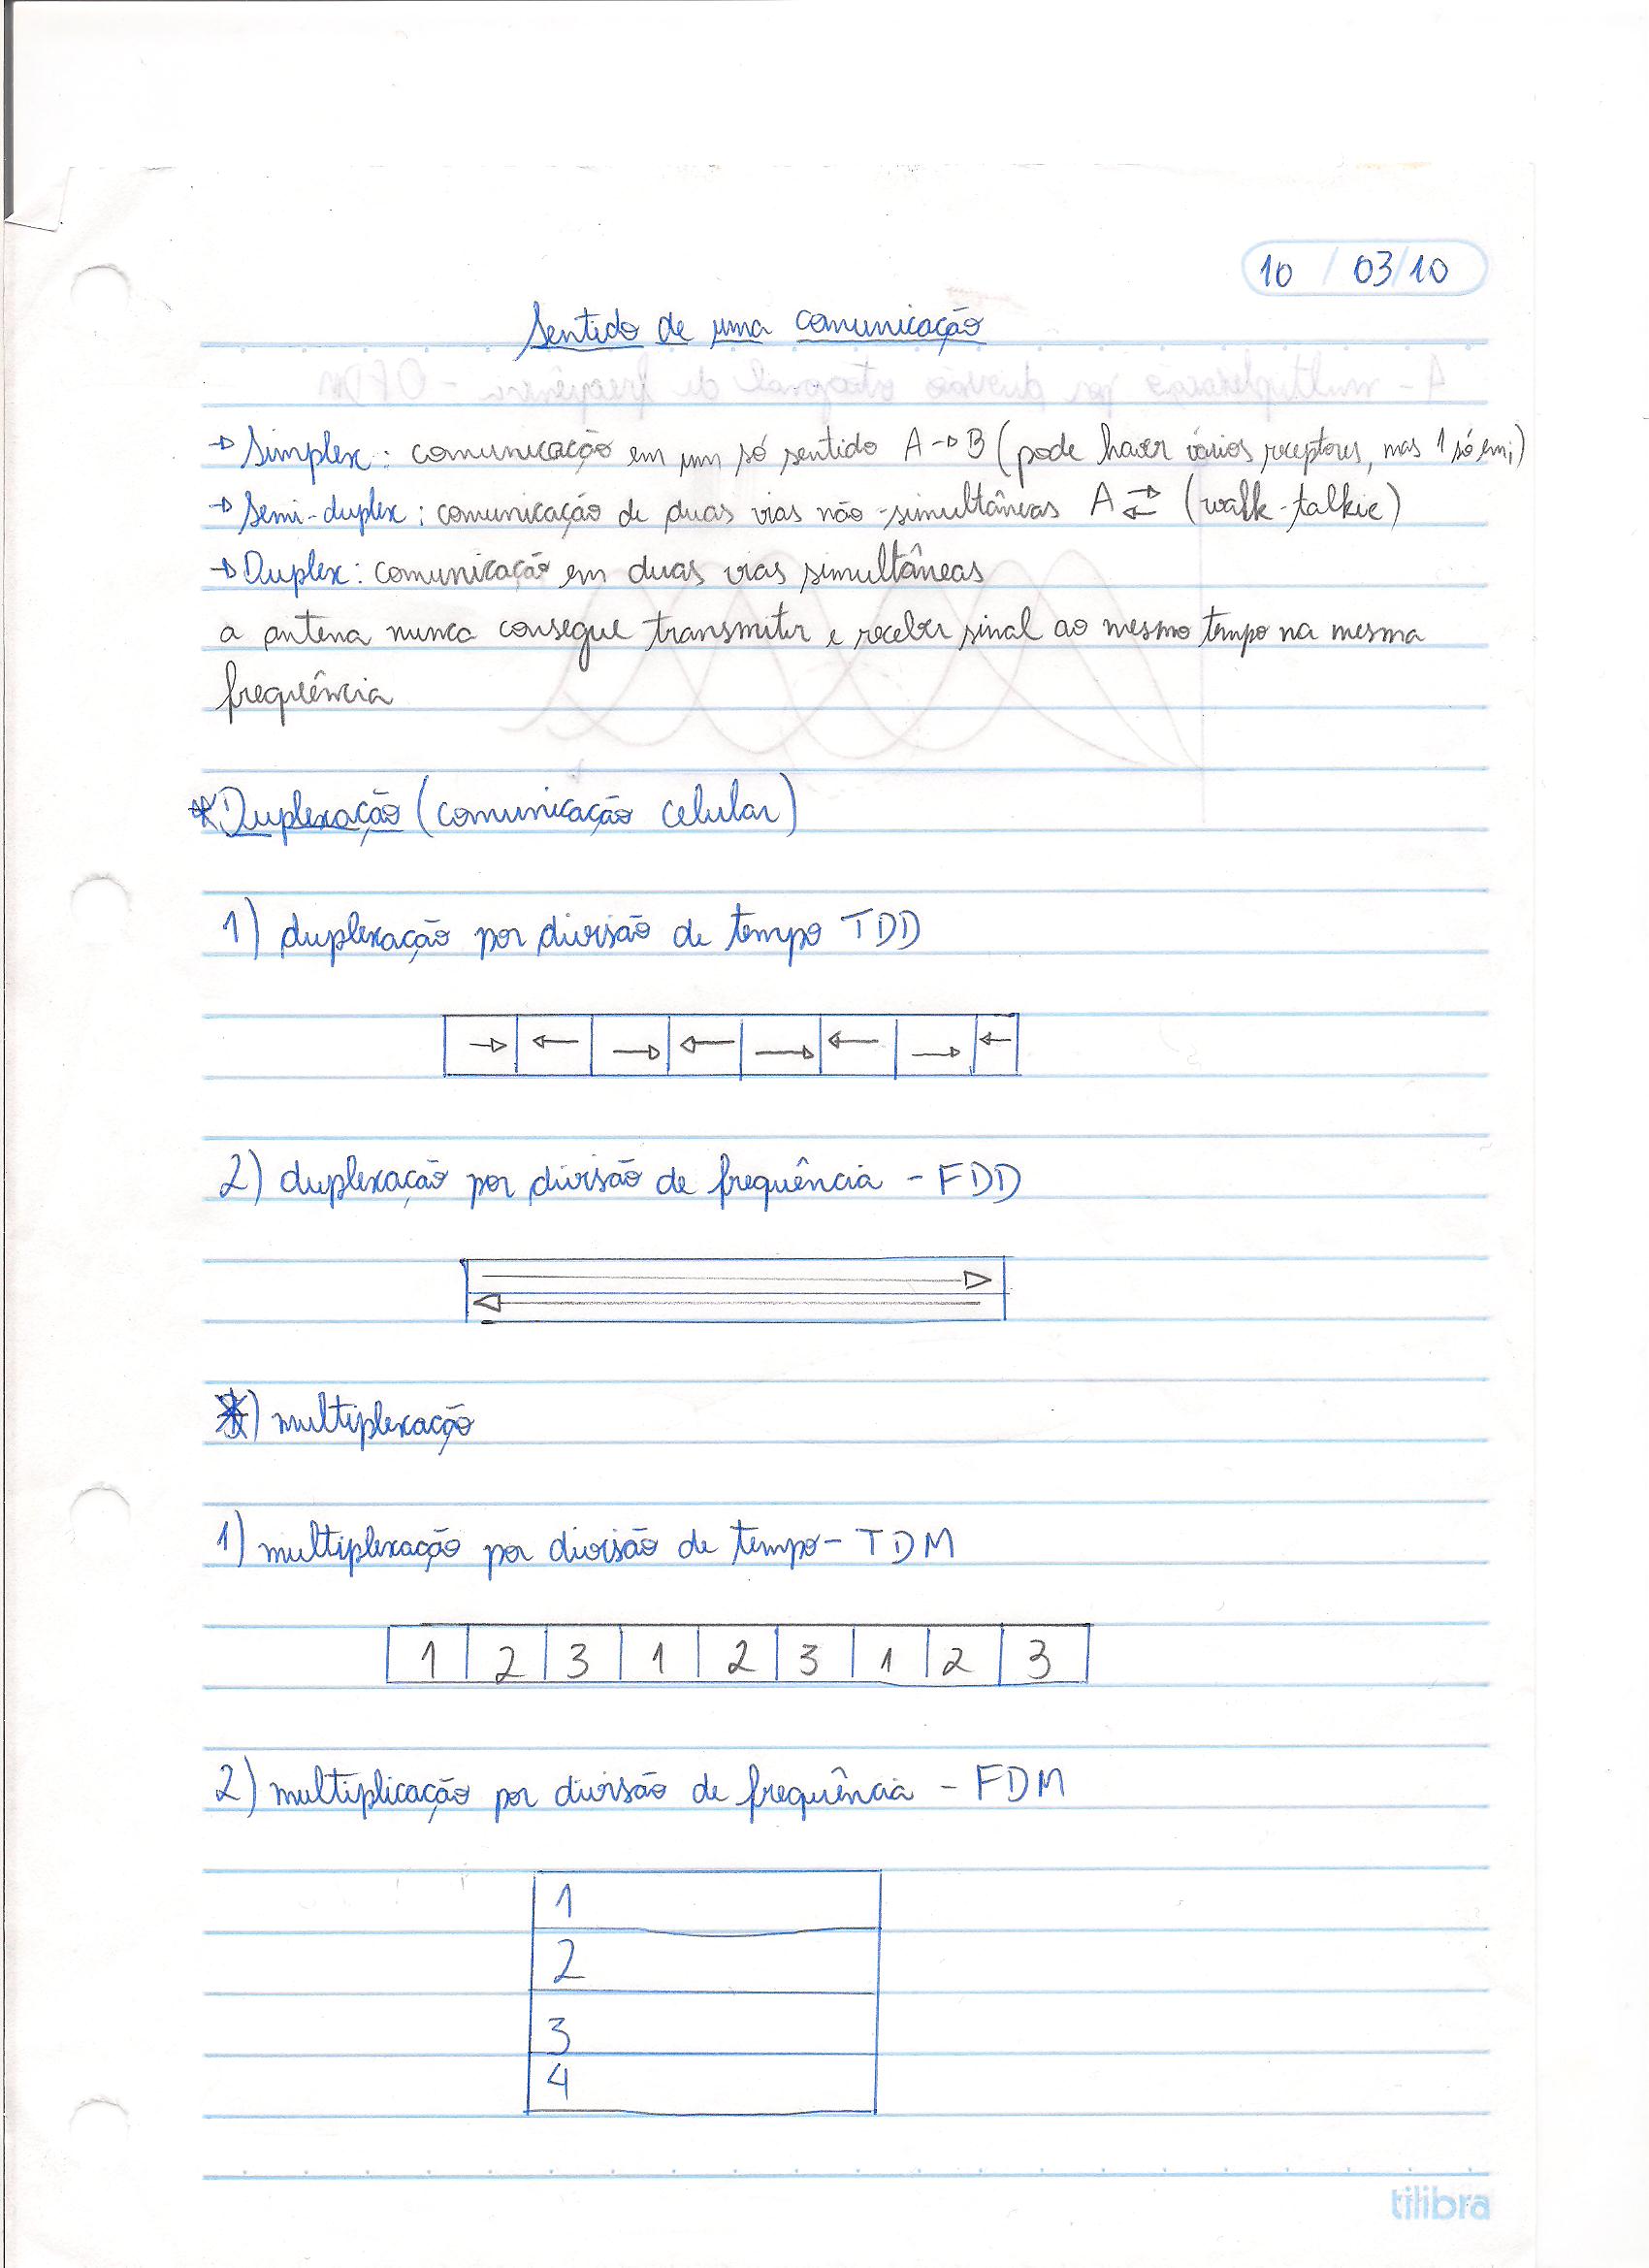 10 / 03/10
Sentido de uma comunicação
→ Simplex: comunicação em um só sentido A→B (pode haver vários receptores, mas 1 só emi)
→ Semi-duplex: comunicação de duas vias não-simultâneas A ⇄ (walk-talkie)
→ Duplex: comunicação em duas vias simultâneas
a antena nunca consegue transmitir e receber sinal ao mesmo tempo na mesma
frequência
* Duplexação (comunicação celular)
1) duplexação por divisão de tempo TDD
→ ← → ← → ← → ←
2) duplexação por divisão de frequência - FDD
*) multiplexação
1) multiplexação por divisão de tempo - TDM
1 2 3 1 2 3 1 2 3
2) multiplicação por divisão de frequência - FDM
1
2
3
4
tilibra